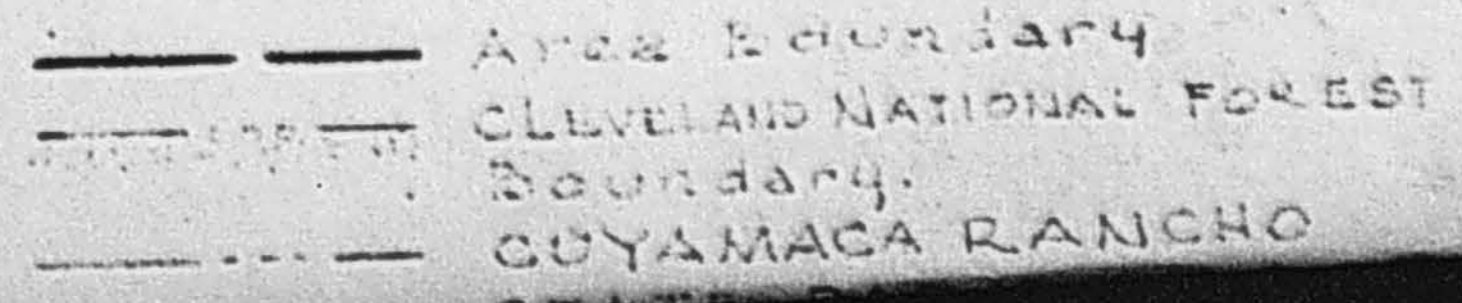 Area Boundary
CLEVELAND NATIONAL FOREST
Boundary.
CUYAMACA RANCHO